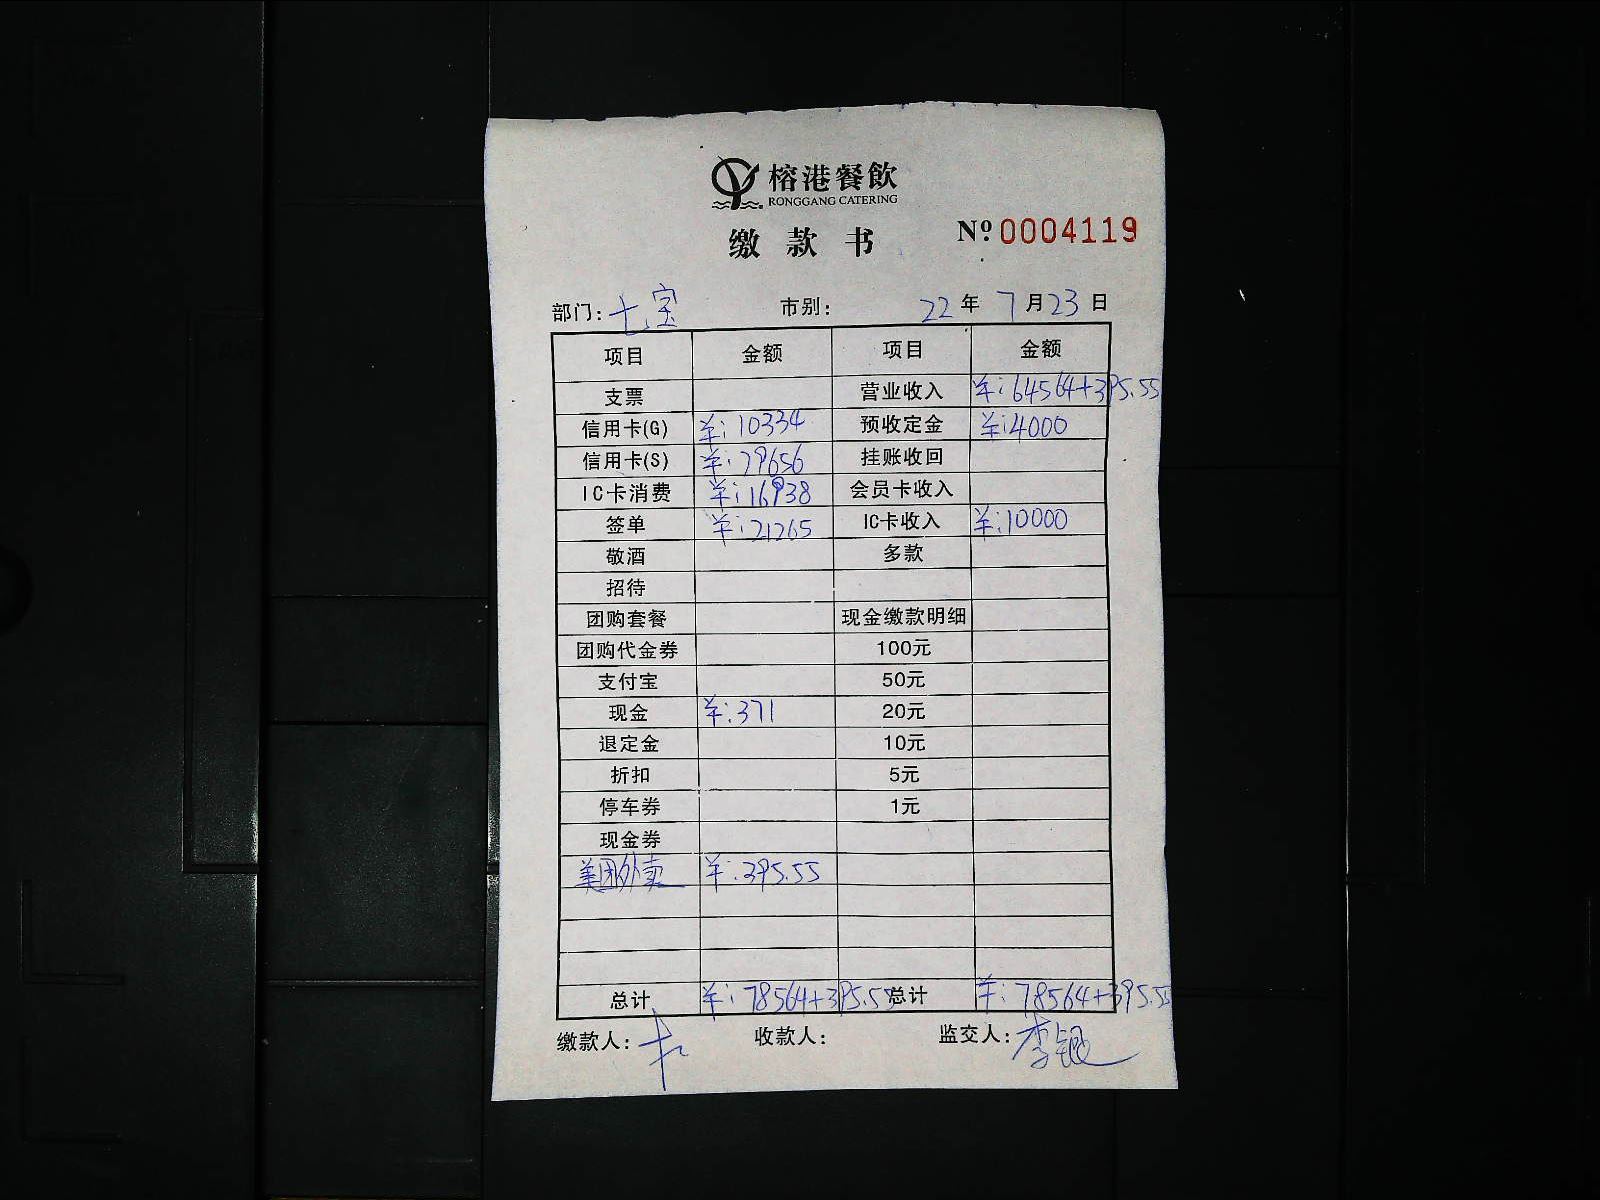 榕港餐飲
RONGGANG CATERING
缴款书 Nº 0004119
部门: 七宝 市别: 22年 7月23日
项目 金额 项目 金额
支票 营业收入 ¥:64564+395.55
信用卡(G) ¥:10334 预收定金 ¥:4000
信用卡(S) ¥:29656 挂账收回
IC卡消费 ¥:16938 会员卡收入
签单 ¥:21265 IC卡收入 ¥:10000
敬酒 多款
招待
团购套餐 现金缴款明细
团购代金券 100元
支付宝 50元
现金 ¥:371 20元
退定金 10元
折扣 5元
停车券 1元
现金券
美团外卖 ¥:395.55
总计 ¥:78564+395.55 总计 ¥:78564+395.55
缴款人: 收款人: 监交人: 李银